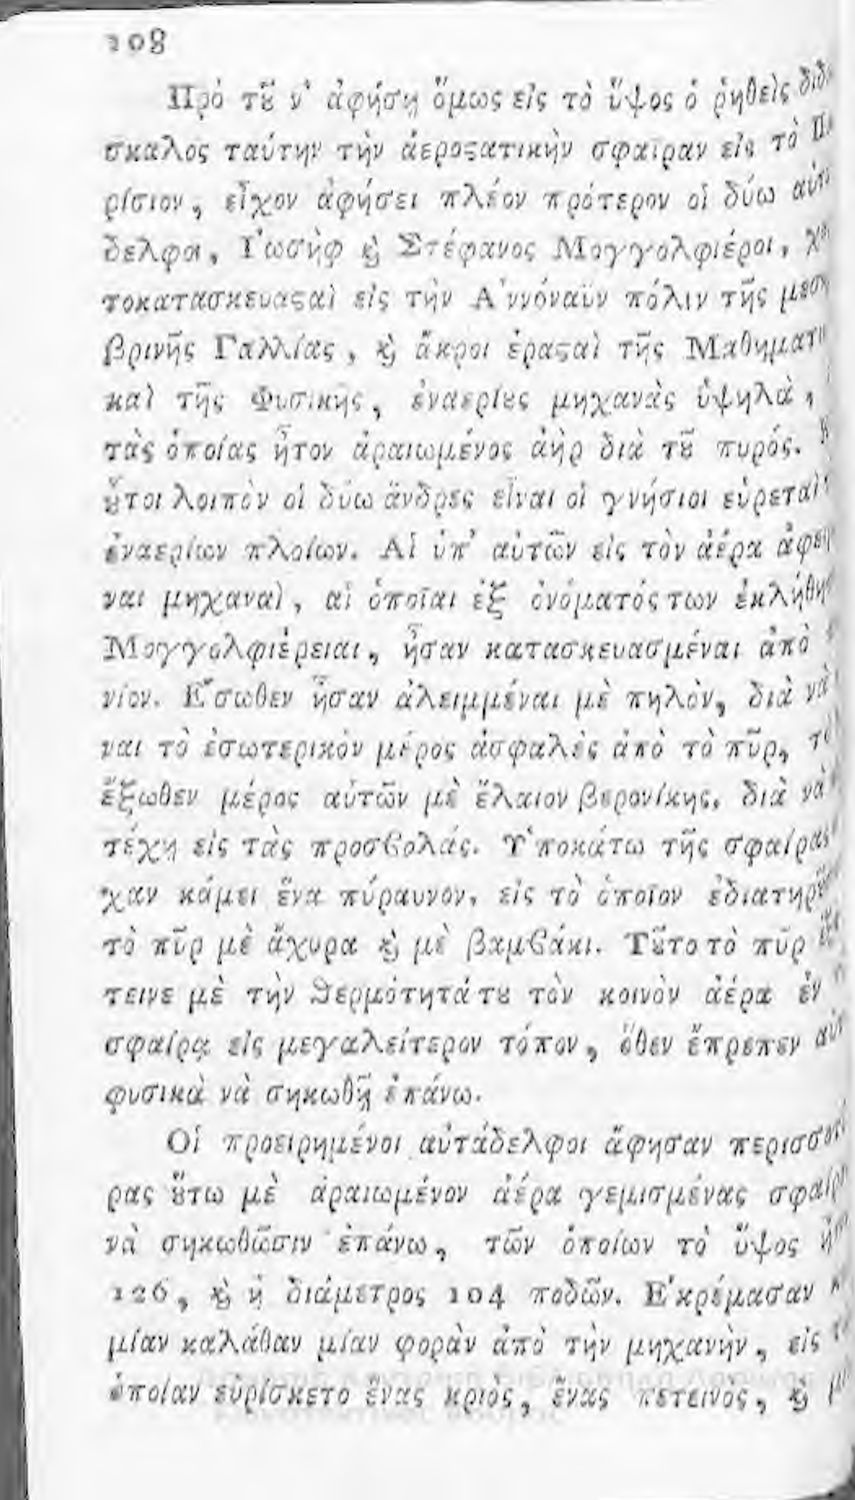 108
Πρὸ τȣ͂ ν' ἀφήσῃ ὅμως εἰς τὸ ὕψος ὁ ῥηθεὶς
σκαλος ταύτην τὴν ἀεροϛατικὴν σφαῖραν εἰς τὸ
ρίσιον, εἶχον ἀφήσει πλέον πρότερον οἱ δύω
δελφοι, Ι'ωσὴφ ϗ Στέφανος Μογγολφιέροι,
τοκατασκευαϛαὶ εἰς τὴν Α'ννόναϋν πόλιν τῆς
βρινῆς Γαλλίας, ϗ ἄκροι ἐραϛαὶ τῆς
καὶ τῆς Φυσικῆς, ἐναερίȣς μηχανὰς ὑψηλὰ,
τὰς ὁποίας ἦτον ἀραιωμένος ἀὴρ διὰ τȣ͂ πυρός.
ȣ̔͂τοι λοιπὸν οἱ δύω ἄνδρες εἶναι οἱ γνήσιοι εὑρεταὶ
ἐναερίων πλοίων. Αἱ ὑπ' αὐτῶν εἰς τὸν ἀέρα
ναι μηχαναὶ, αἱ ὁποῖαι ἐξ ὀνόματός των
Μογγολφιέρειαι, ἦσαν κατασκευασμέναι ἀπὸ
νίον. Ε῎σωθεν ἦσαν ἀλειμμέναι μὲ πηλὸν, διὰ νὰ
ναι τὸ ἐσωτερικὸν μέρος ἀσφαλὲς ἀπὸ τὸ πῦρ,
ἔξωθεν μέρος αὐτῶν μὲ ἔλαιον βερονίκης, διὰ νὰ
τέχῃ εἰς τὰς προσϐολάς. Υ῾ποκάτω τῆς σφαίρας
χαν κάμει ἕνα πύραυνον, εἰς τὸ ὁποῖον
τὸ πῦρ μὲ ἄχυρα ϗ μὲ βαμϐάκι. Τȣ͂το τὸ πῦρ
τεινε μὲ τὴν θερμότητά τȣ τὸν κοινὸν ἀέρα ἐν
σφαίρᾳ εἰς μεγαλείτερον τόπον, ὅθεν ἔπρεπεν
φυσικὰ νὰ σηκωθῇ ἐπάνω.
Οἱ προειρημένοι αὐτάδελφοι ἄφησαν
ρας ȣ̔́τω μὲ ἀραιωμένον ἀέρα γεμισμένας
νὰ σηκωθῶσιν ἐπάνω, τῶν ὁποίων τὸ ὕψος
126, ϗ ἡ διάμετρος 104 ποδῶν. Ε'κρέμασαν
μίαν καλάθαν μίαν φορὰν ἀπὸ τὴν μηχανὴν, εἰς
ὁποίαν εὑρίσκετο ἕνας κριὸς, ἕνας πετεινὸς, ϗ